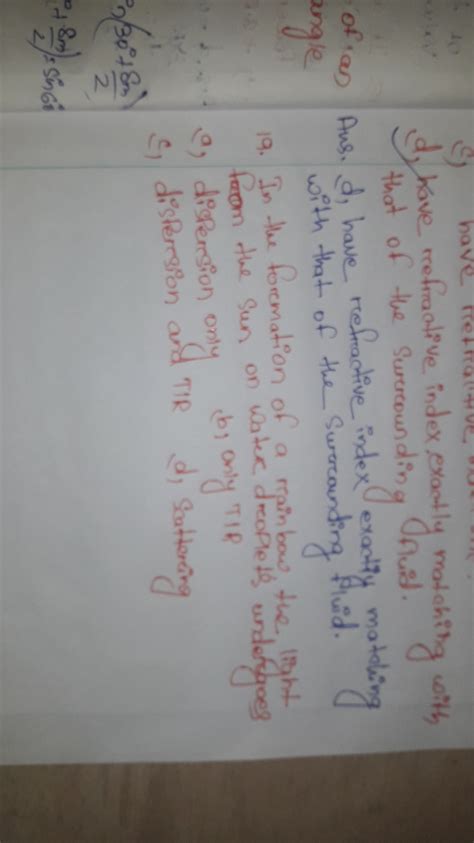 of an
angle
n(30°+δm
2
°+δm
2)=sin60
c) have refractive
d, have refractive index exactly matching with
that of the surrounding fluid.
Ans. d, have refractive index exactly matching
with that of the surrounding fluid.
19. In the formation of a rainbow the light
from the sun on water droplets undergoes
a, dispersion only b, only TIR
c, dispersion and TIR d, Scattering